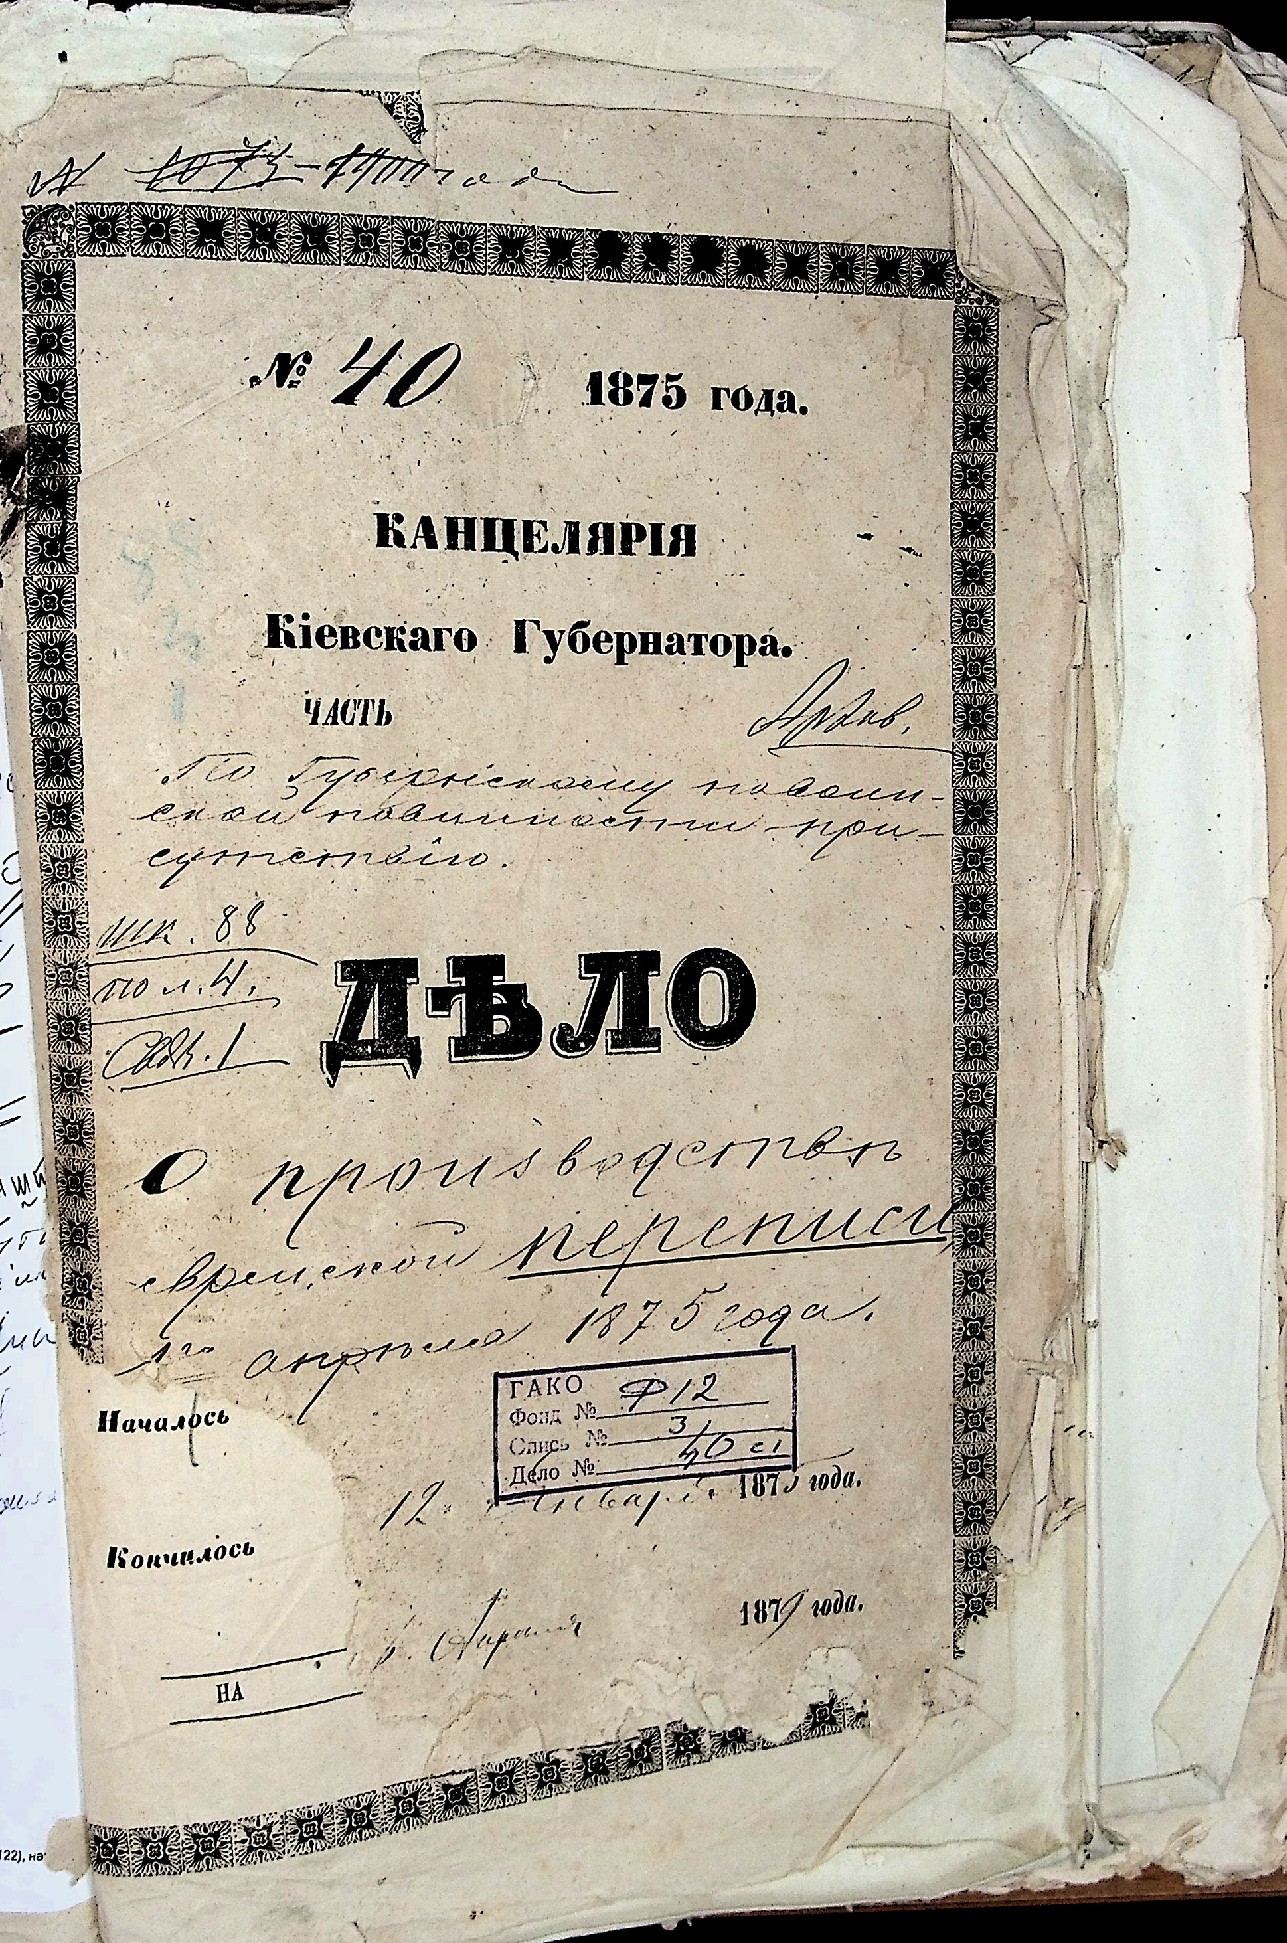 № 1073-1900 года
№ 40 1875 года.
КАНЦЕЛЯРІЯ
Кіевскаго Губернатора.
ЧАСТЬ
Архив.
По Губернскому по воин-
ской повинности при-
сутствію.
шк. 88
пол. 4.
Свяк. 1
ДѢЛО
О производствѣ
еврейской переписи
1го апрѣля 1875 года.
ГАКО
Фонд № Ф12
Опись № 3
Дело № 40 с1
Началось
12 Января 1875 года.
Кончилось
Апрѣля 1879 года.
НА